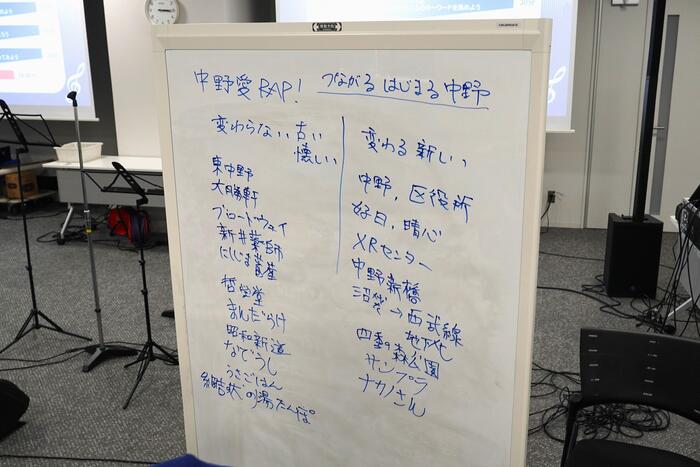 中野愛RAP! つながる はじまる 中野
変わらない 古い
懐しい
東中野
大勝軒
ブロードウェイ
新井薬師
哲学堂
まんだらけ
昭和新道
なでうし
うさごはん
の湯たんぽ
変わる 新しい
中野,区役所
好日,晴心
XRセンター
中野新橋
沼袋→西武線
地下化
四季の森公園
サンプラ
ナカノさん